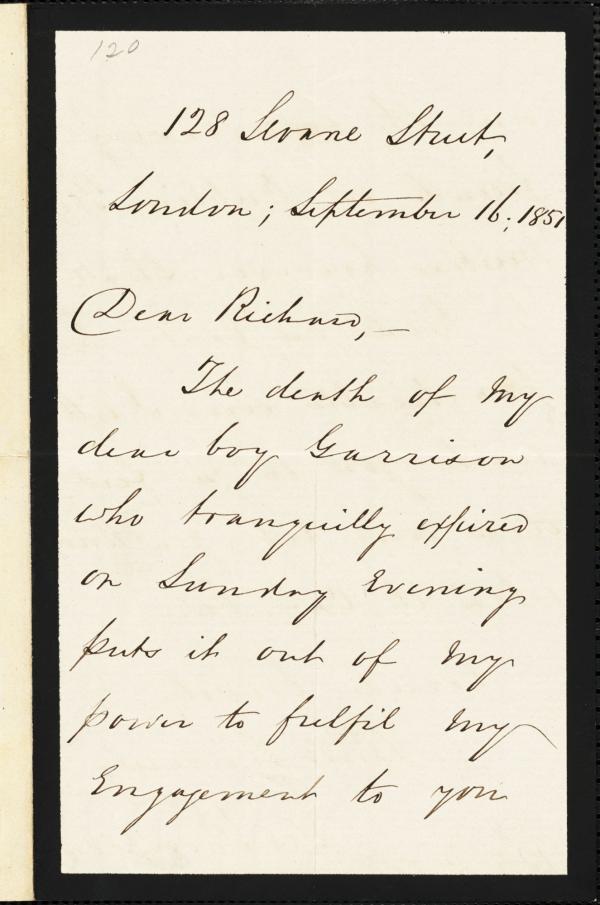 120
128 Sloane Street,
London; September 16, 1851
Dear Richard,—
The death of my
dear boy Garrison
who tranquilly expired
on Sunday Evening
puts it out of my
power to fulfil my
Engagement to you